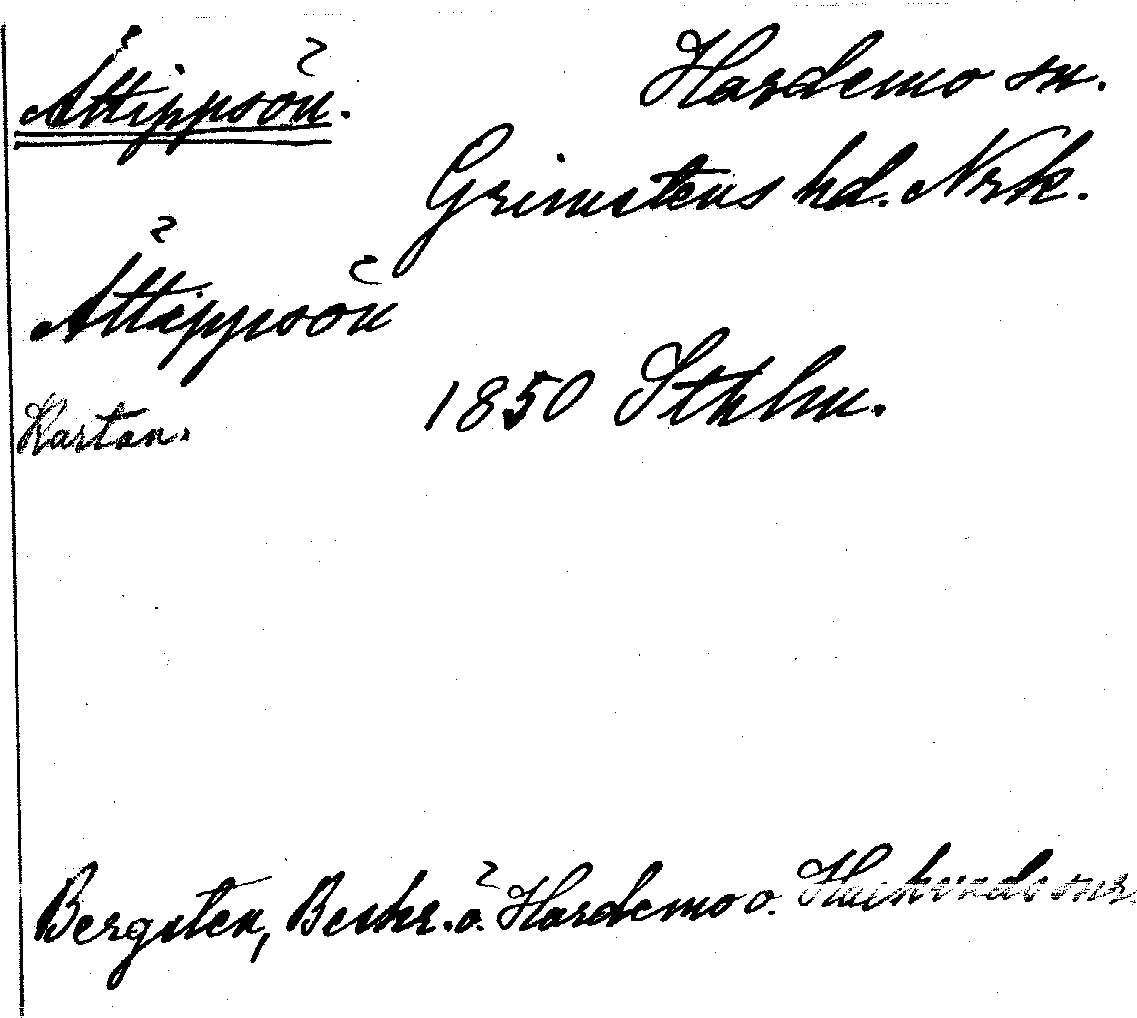 Åttippsön.
Hardemo sn.
Grimstens hd. Nrk.
Åttippsön
Kartan.
1850 Sthlm.
Bergsten, Beskr. ö. Hardemo o. Hackvads snr.